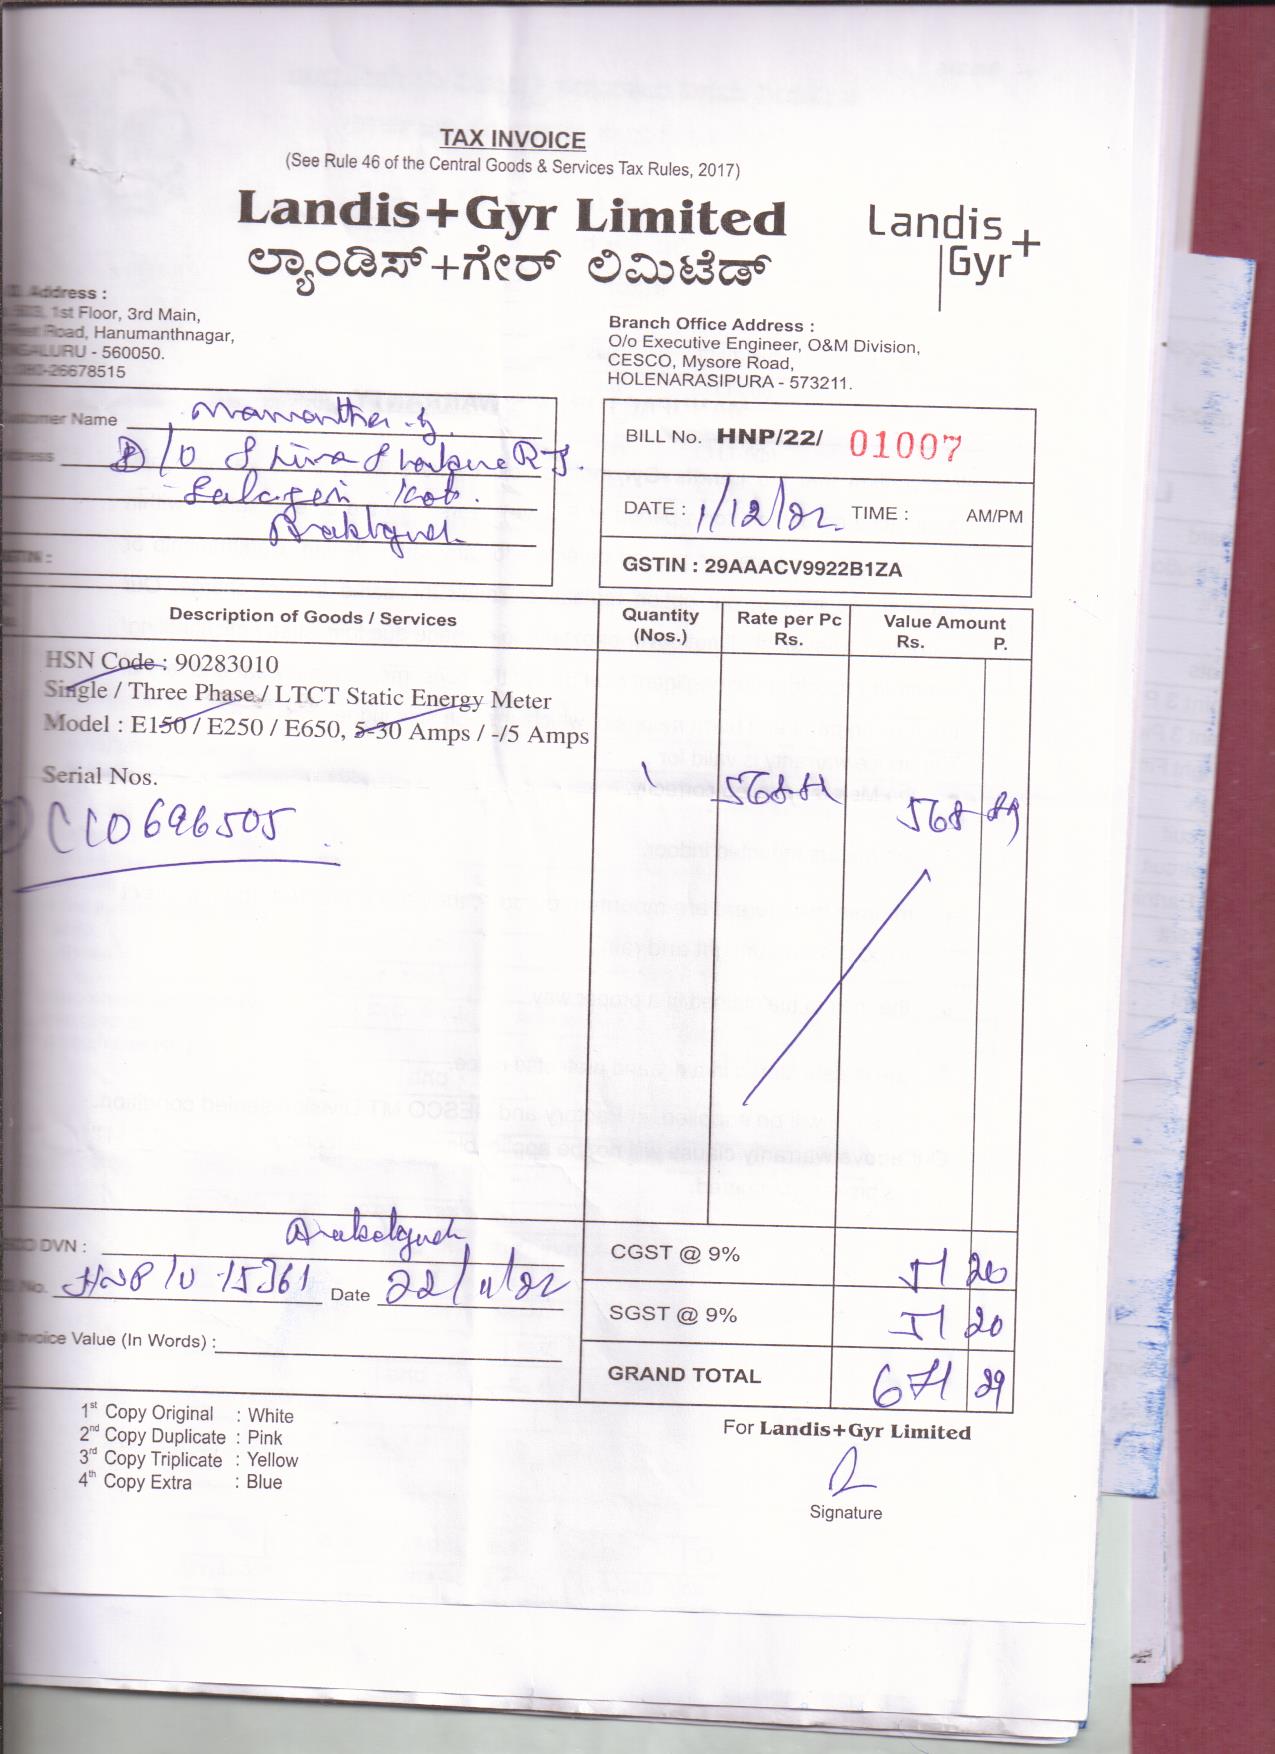 TAX INVOICE
(See Rule 46 of the Central Goods & Services Tax Rules, 2017)
Landis+Gyr Limited
ಲ್ಯಾಂಡಿಸ್+ಗೇರ್ ಲಿಮಿಟೆಡ್
Landis
Gyr+
Address :
1st Floor, 3rd Main,
Road, Hanumanthnagar,
- 560050.
080-26678515
Branch Office Address :
O/o Executive Engineer, O&M Division,
CESCO, Mysore Road,
HOLENARASIPURA - 573211.
Customer Name
Address D/O
BILL No. HNP/22/ 01007
DATE : 1/12/22 TIME : AM/PM
GSTIN : 29AAACV9922B1ZA
Description of Goods / Services Quantity (Nos.) Rate per Pc Rs. Value Amount Rs. P.
HSN Code : 90283010
Single / Three Phase / LTCT Static Energy Meter
Model : E150 / E250 / E650, 5-30 Amps / -/5 Amps
Serial Nos.
1 568
568
DVN : Arakalgud
No. HNP/U 15361 Date 22/11/22
Invoice Value (In Words) :
CGST @ 9% 51 20
SGST @ 9% 51 20
GRAND TOTAL 671 29
1st Copy Original : White
2nd Copy Duplicate : Pink
3rd Copy Triplicate : Yellow
4th Copy Extra : Blue
For Landis+Gyr Limited
Signature